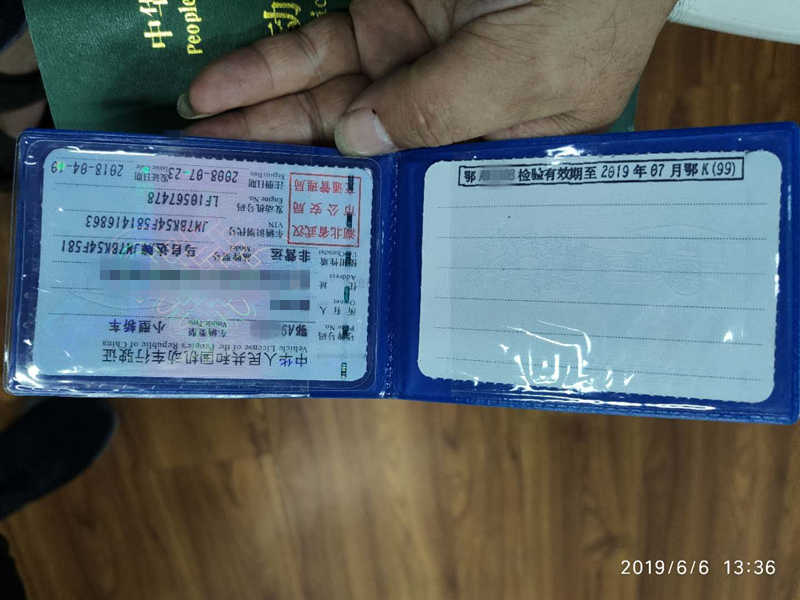 中华
People
动
中华人民共和国机动车行驶证
Vehicle License of the People's Republic of China
号牌号码 鄂A9 车辆类型 小型轿车
Plate No. Vehicle Type
所有人
Owner
住址
Address
使用性质 非营运 品牌型号 马自达牌JM7BK54F581
Use Character Model
湖北省武汉
市公安局
交通管理局
车辆识别代号 JM7BK54F581416863
VIN
发动机号码 LF10567478
Engine No.
注册日期 2008-07-23 发证日期 2018-04-19
Register Date Issue Date
鄂A 检验有效期至 2019年07月鄂K(99)
2019/6/6 13:36